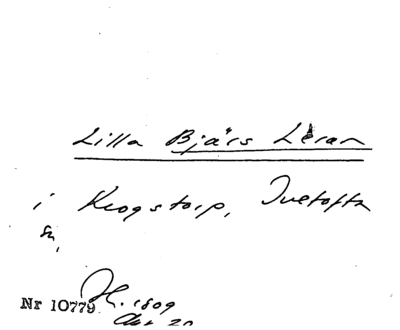 Lilla Bjärs Leran
i Krogstorp, Ivetofta
sn,
Nr 10779. H. 1809